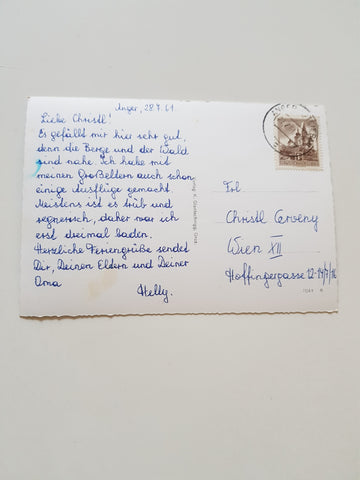 Anger, 28.7.61
Liebe Christl!
Es gefällt mir hier sehr gut,
denn die Berge und der Wald
sind nahe. Ich habe mit
meinen Großeltern auch schon
einige Ausflüge gemacht.
Meistens ist es trüb und
regnerisch, daher war ich
erst dreimal baden.
Herzliche Feriengrüße sendet
Dir, Deinen Eltern und Deiner
Oma
Helly.
ANGER
Frl
Christl Cerveny
Wien XII
Hoffingergasse 12-14/7/